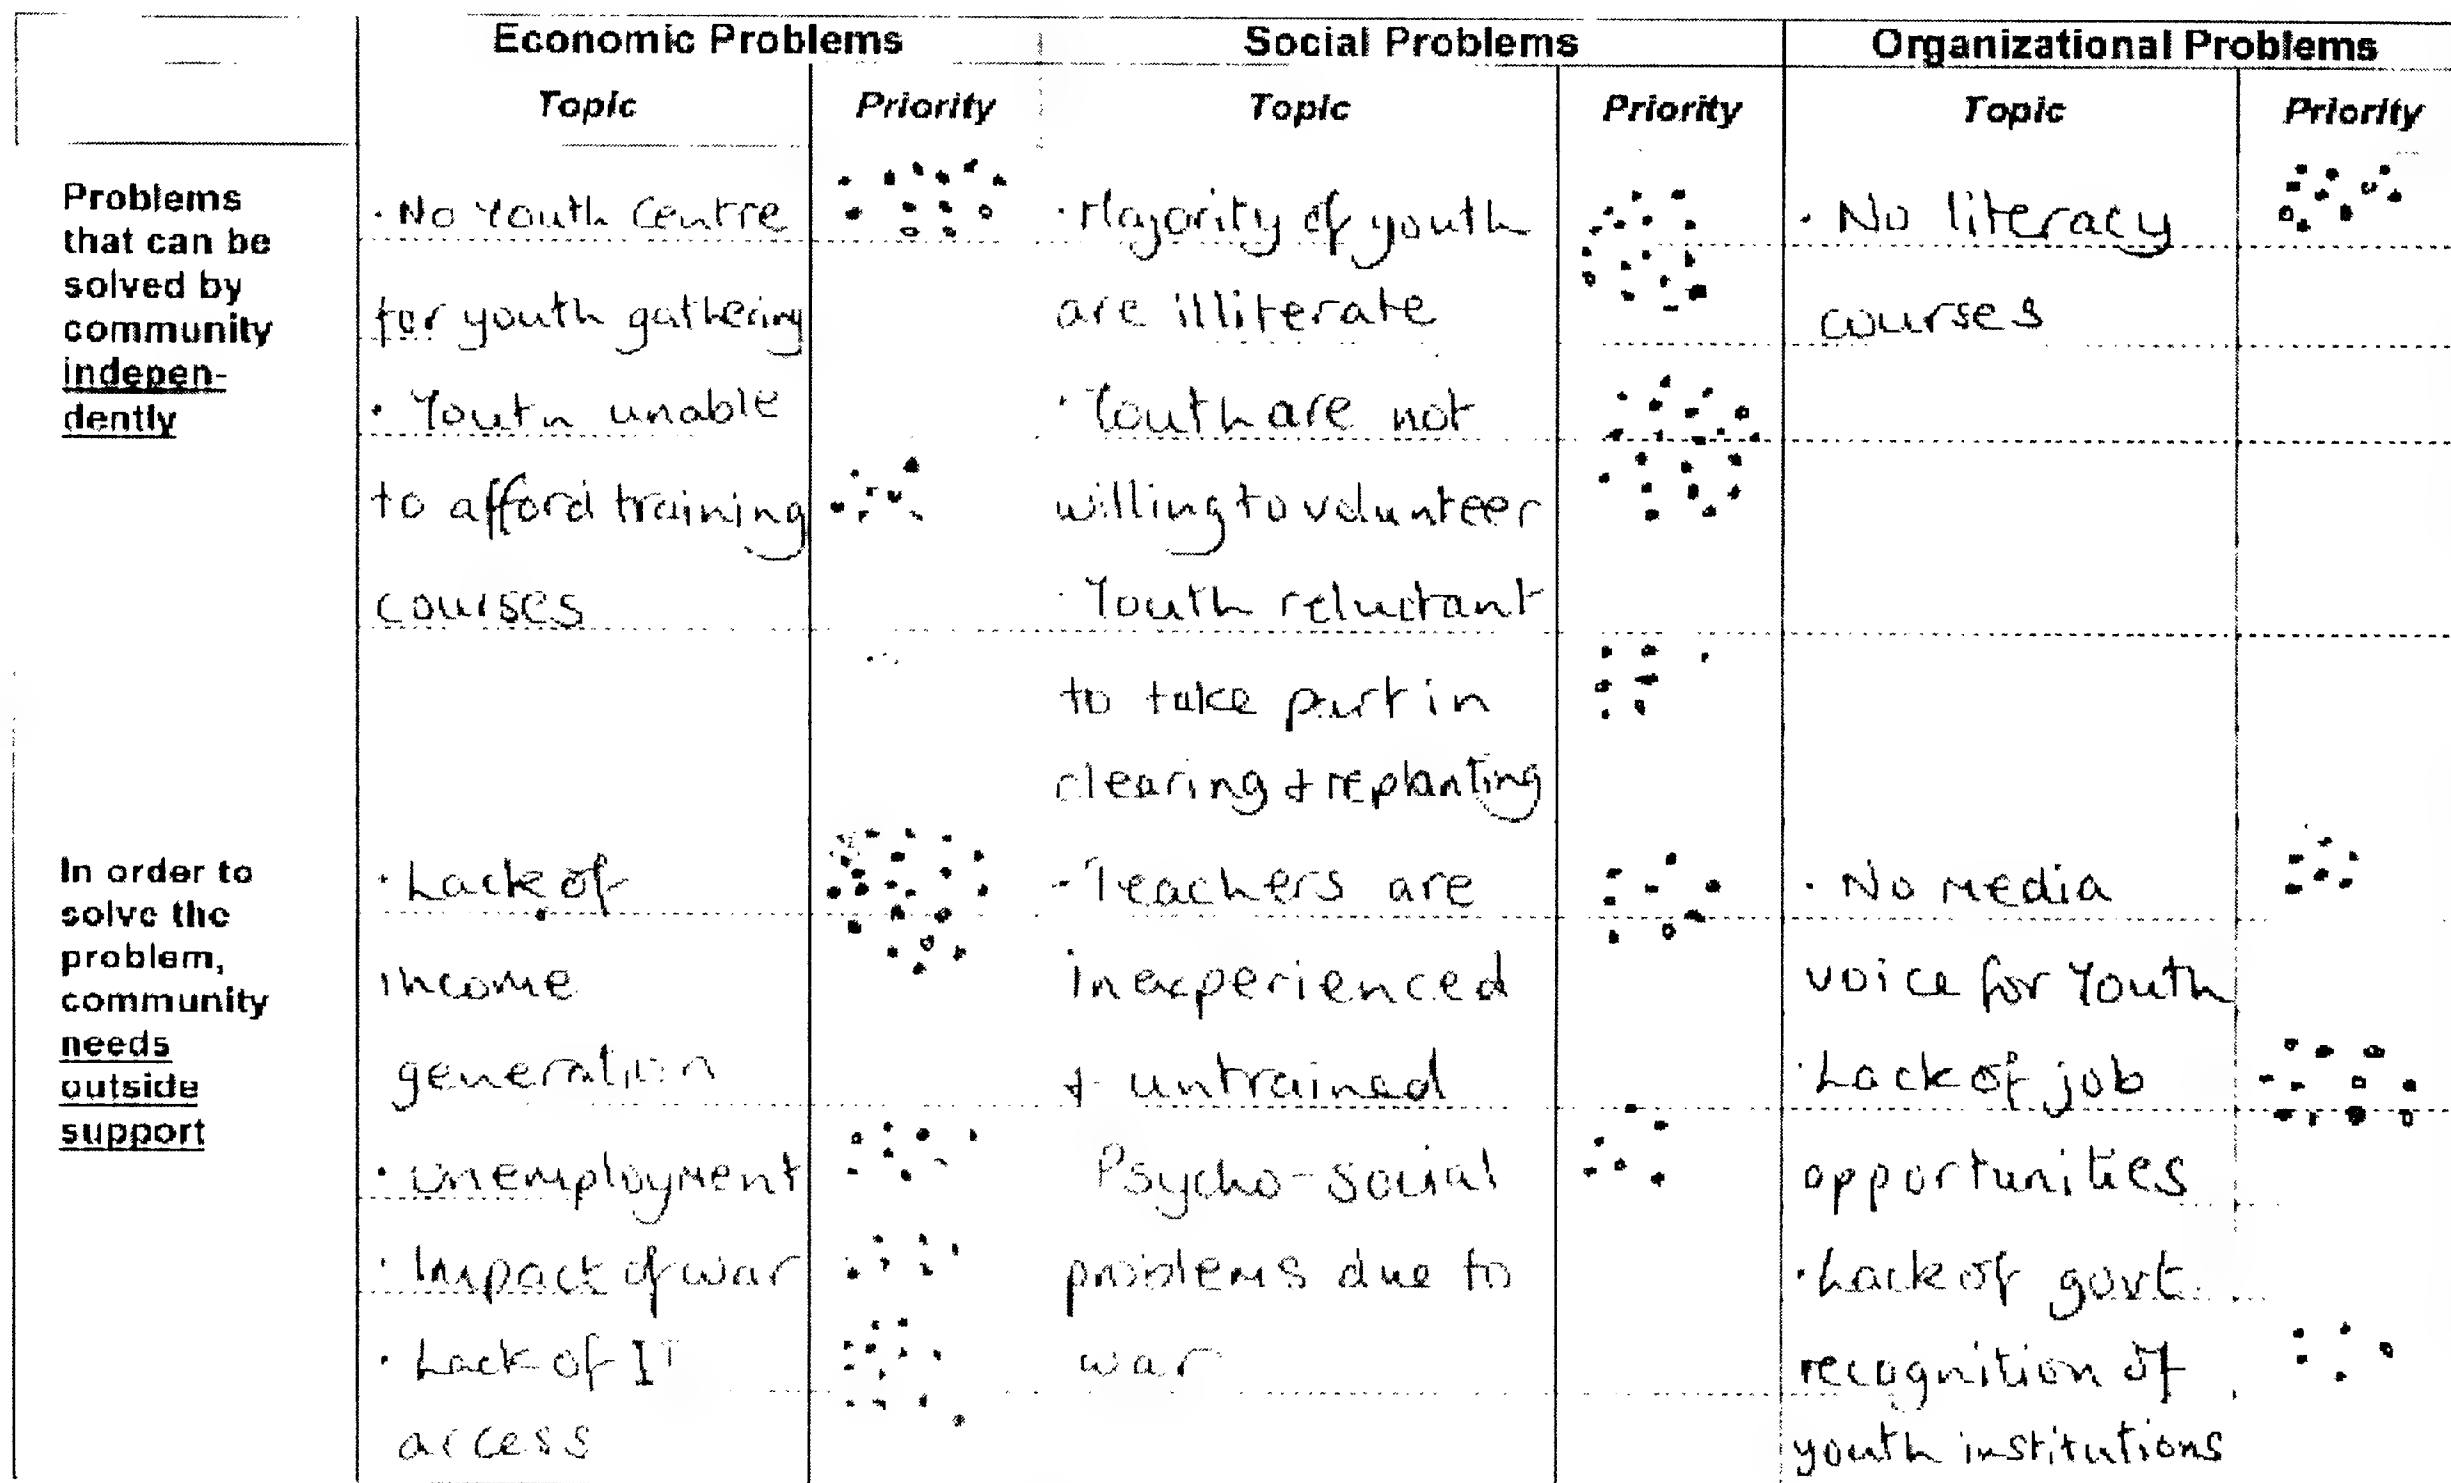 Economic Problems Social Problems Organizational Problems
Topic Priority Topic Priority Topic Priority
Problems
that can be
solved by
community
indepen-
dently
· No Youth Centre
for youth gathering
· Youth unable
to afford training
courses
· Majority of youth
are illiterate
· Youth are not
willing to volunteer
· Youth reluctant
to take part in
clearing & replanting
· No literacy
courses
In order to
solve the
problem,
community
needs
outside
support
· Lack of
income
generation
· unemployment
· Impact of war
· Lack of IT
access
- Teachers are
inexperienced
& untrained
Psycho-social
problems due to
war
· No media
voice for Youth
· Lack of job
opportunities
· Lack of govt.
recognition of
youth institutions